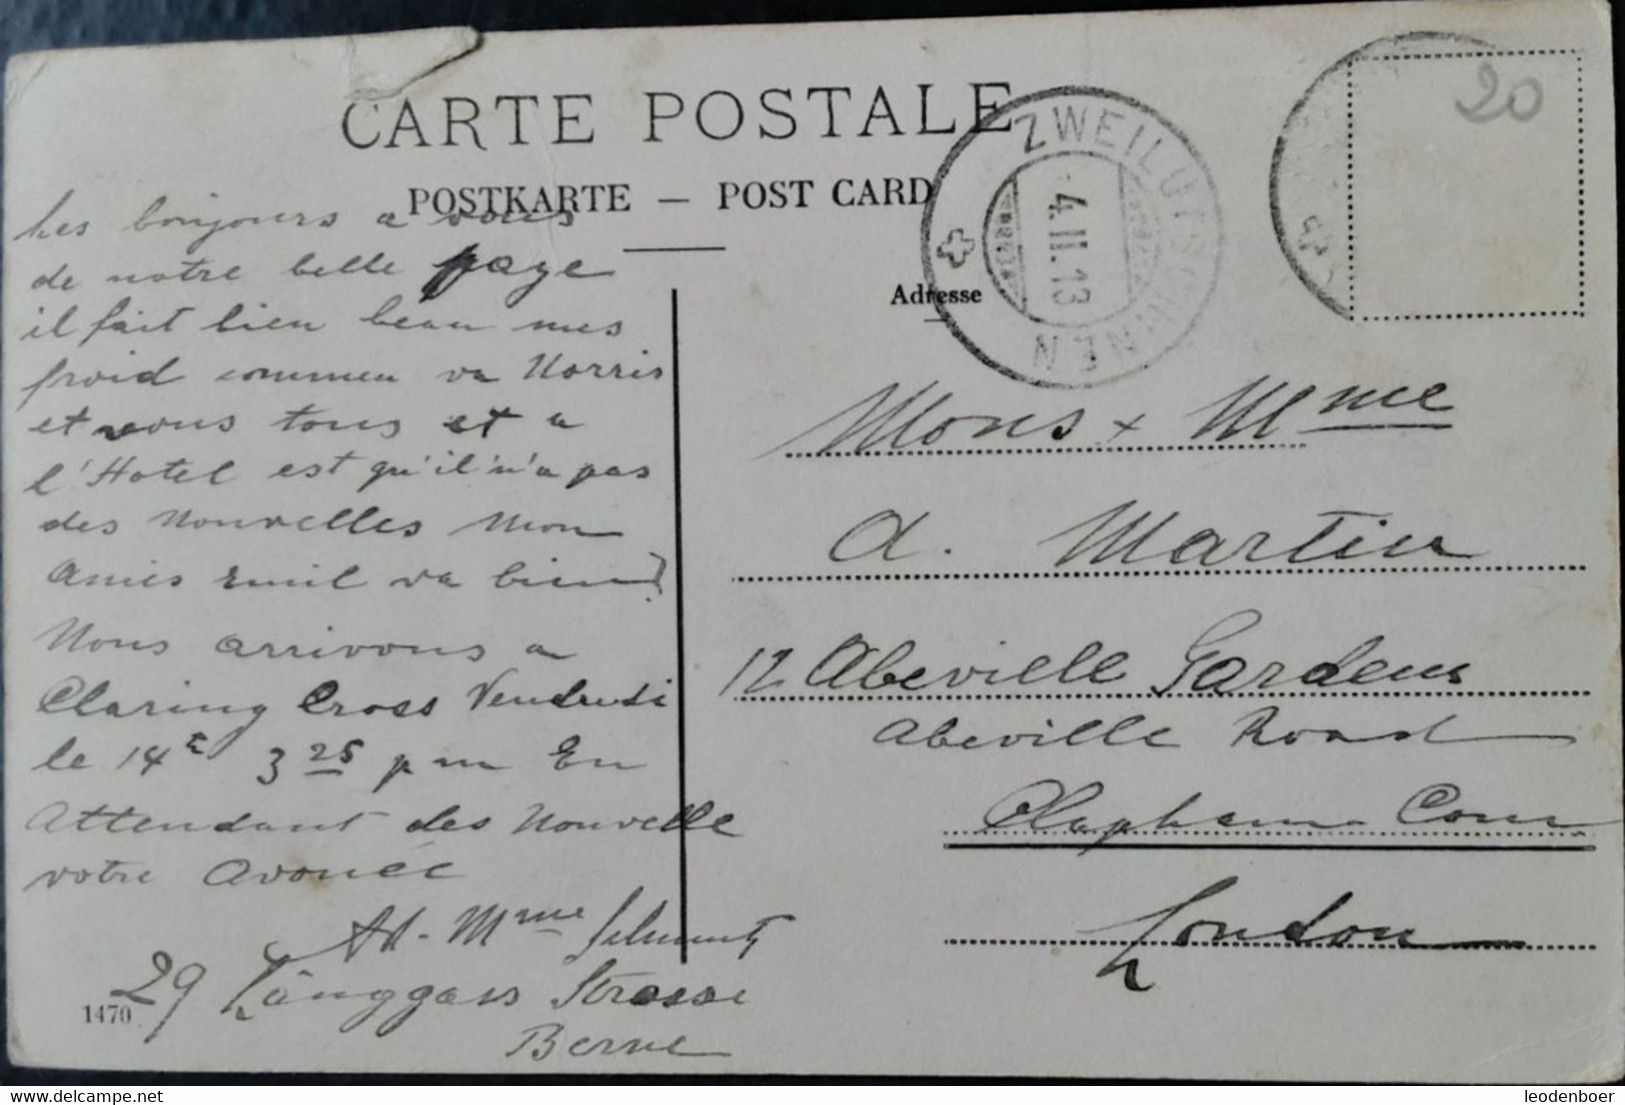 CARTE POSTALE
POSTKARTE — POST CARD
ZWEILÜTSCHINEN
4.II.13
20
Adresse
Les bonjours a vous
de notre belle paye
il fait bien beau mes
froid commen va Norris
et vous tous et a
l'Hotel est qu'il n'a pas
des Nouvelles Mon
Amis Emil va bien?
Nous arrivons a
Claring Cross Vendredi
le 14te 3 25 pm En
Attendant des Nouvelle
votre Avouée
Ad. Mme
29 Länggass Strasse
Berne
1470
Mons + Mme
A. Martin
12 Abeville Gardens
Abeville Road
Clapham Com
London
leodenboer